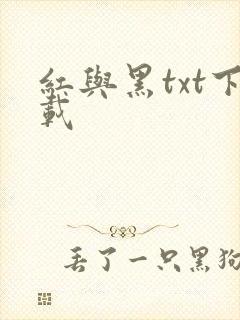 紅與黑txt下
載
丢了一只黑狗